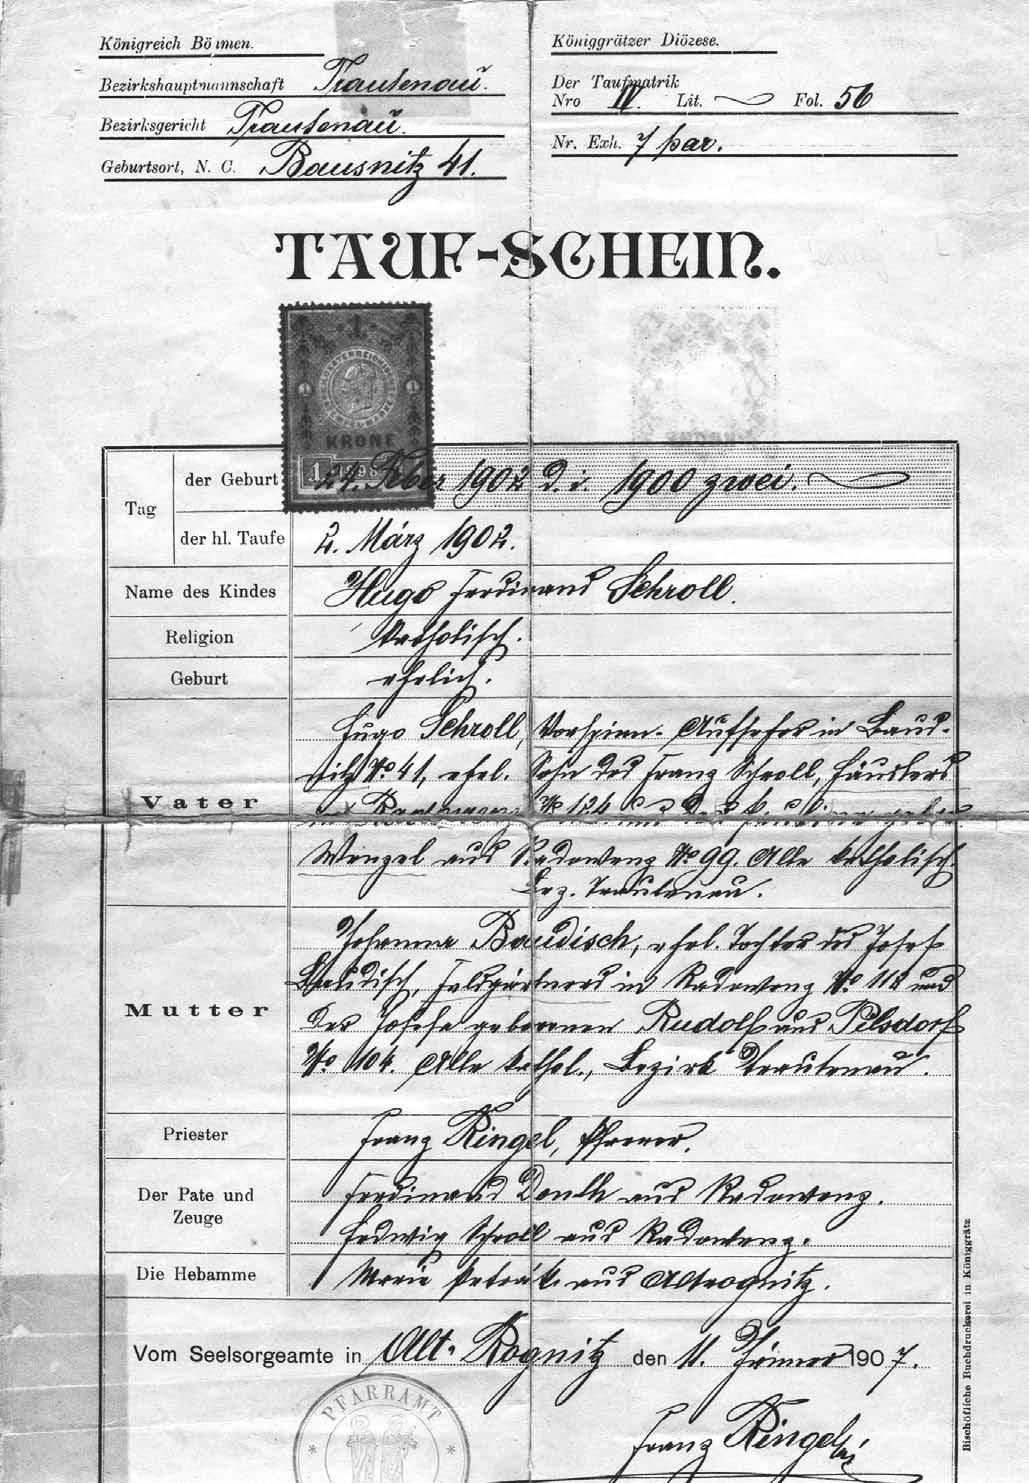 Königreich Böhmen.
Bezirkshauptmannschaft Trautenau.
Bezirksgericht Trautenau.
Geburtsort, N. C. Bausnitz 41.
Königgrätzer Diözese.
Der Taufmatrik
Nro IV. Lit. Fol. 56
Nr. Exh. 7 par.
TAUF-SCHEIN.
1
1 1
KRONE
1 1898
Tag
der Geburt 24. Feber 1902 d. i. 1900 zwei.
der hl. Taufe 2. März 1902.
Name des Kindes Hugo Ferdinand Schroll.
Religion katholisch.
Geburt ehelich.
Vater
Hugo Schroll, Vorspinn-Aufseher in Baus-
nitz No 41, ehel. Sohn des Franz Schroll, Häuslers
in Radowenz No 124 und der geborene
Wenzel aus Radowenz No 99. Alle katholisch.
Bez. Trautenau.
Mutter
Johanna Baudisch, ehel. Tochter des Josef
Baudisch, Feldgärtners in Radowenz No 118 und
der Josefa geborenen Rudolf aus Pilsdorf
No 104. Alle kathol., Bezirk Trautenau.
Priester Franz Ringel, Pfarrer.
Der Pate und
Zeuge
Ferdinand aus Radowenz.
Hedwig Schroll aus Radowenz.
Die Hebamme Marie aus Altrognitz.
Vom Seelsorgeamte in Alt-Rognitz den 11. Jänner 1907.
PFARRAMT
Franz Ringel
Bischöfliche Buchdruckerei in Königgrätz